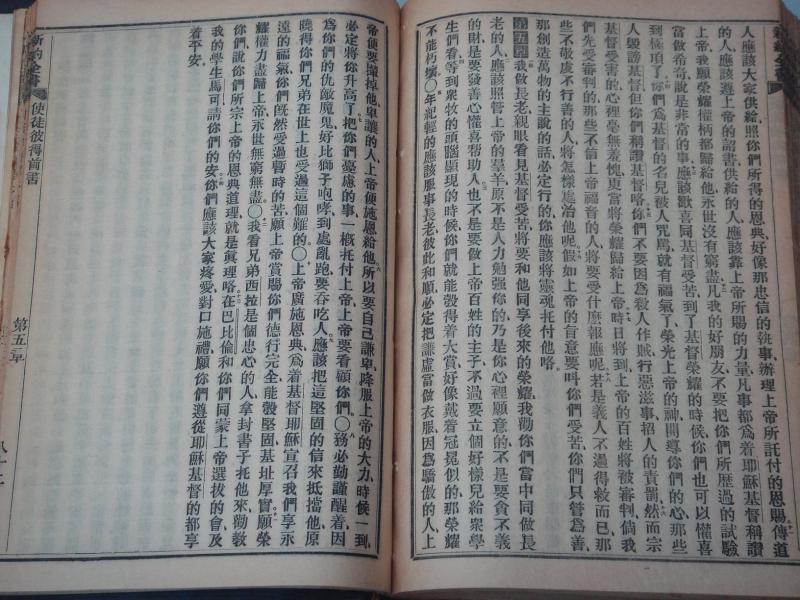 新約全書
人應該大家供給、照你們所得的恩典、好像那忠信的執事、辦理上帝所託付的恩賜、傳道
的人、應該遵上帝的詔書、供給的人、應該靠上帝所賜的力量、凡事都爲着耶穌基督、稱讚
上帝、我願榮耀權柄都歸給他、永世沒有窮盡、凡我的好朋友、不要把你們所歷過的試驗
當做希奇、說是非常的事、應該歡喜同基督受苦、到了基督榮耀的時候、你們也可以懽喜
到極頂了、你們爲基督的名兒、被人咒罵、就有福氣了、榮光上帝的神、開導你們的心、那些
人毀謗基督、但你們稱讚基督咯、你們不要因爲殺人作賊、行惡滋事、招人的責罰、然而宗
基督受害的、心裡毫無羞愧、更當將榮耀歸給上帝、時日將到、上帝的百姓將被審判、倘我
們先受審判的、那些不信上帝福音的人、將要受什麼報應呢、若是義人不過得救而已、那
些不敬虔不行善的人、將怎樣處治他呢、假如上帝的旨意、要呌你們受苦、你們只管爲善、
那創造萬物的主說的話、必定行的、你應該將靈魂托付他咯、
第五章 我做長老、親眼看見基督受苦、將要和他同享後來的榮耀、我勸你們當中同做長
老的人、應該照管上帝的羣羊、原不是人力勉强你的、乃是你心裡願意的、不是要貪不義
的財、是要發善心懽喜幫助人、也不是要做上帝百姓的主子、不過要立個好樣兒給衆學
生們看、等到衆牧的頭腦顯現的時候、你們就能彀得着大賞、好像戴着冠冕似的、那榮耀
不能朽壞、○年紀輕的、應該服事長老、彼此和順、必定把謙虛當做衣服、因爲驕傲的人、上
帝便要攔掉他、卑讓的人、上帝便施恩給他、所以要自己謙卑、降服上帝的大力、時候一到、
必定將你升高了、把你們憂慮的事、一槪托付上帝、上帝要看顧你們、○務必勤謹醒着、因
爲你們的仇敵魔鬼、好比獅子咆哮、到處亂跑、要吞吃人、應該把這堅固的信來抵擋他、原
曉得你們兄弟在世上、也受過這個難的、○上帝廣施恩典、爲着基督耶穌宣召我們、享永
遠的福氣、你們旣然受過暫時的苦、願上帝賞賜你們、德行完全、能彀堅固、基址厚實、願榮
耀權力、盡歸上帝、永世無窮無盡、○我看兄弟西拉、是個忠心的人、拿封書子托他來、勸敎
你們、說你們所宗上帝的恩典道理、就是眞理咯、在巴比倫和你們同蒙上帝選拔的會、及
我的學生馬可、請你們的安、你們應該大家疼愛、對口施禮、願你們遵從耶穌基督的、都享
着平安、
新約全書 使徒彼得前書 第五章